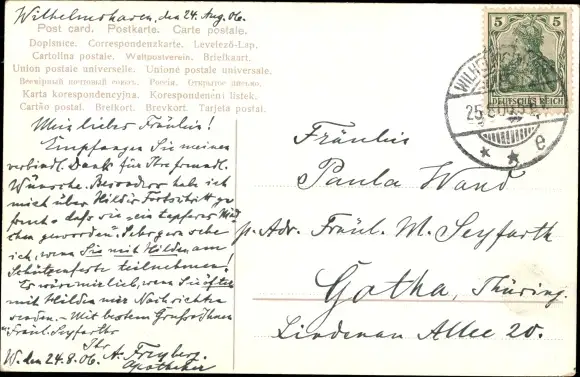 Wilhelmshaven, den 24. Aug. 06.
Post card. Postkarte. Carte postale.
Dopisnice. Correspondenzkarte. Levelező-Lap.
Cartolina postale. Weltpostverein. Briefkaart.
Union postale universelle. Unione postale universale.
Всемірный почтовый союз. Россія. Открытое письмо.
Karta korespondencyjna. Korespondenční listek.
Cartão postal. Bretkort. Brevkort. Tarjeta postal.
Mein liebes Fräulein!
Empfangen Sie meinen
verbindl. Dank für Ihre freundl.
Wünsche. Besonders habe ich
mich über Hildis Fortschritt ge
freut, daß sie ein tapferes Mäd
chen geworden.
ich, wenn Sie mit Hilden am
Schützenfeste teilnehmen!
Es wäre mir lieb, wenn Sie öfter
mit Hilden mir Nachrichten
werden. - Mit bestem Gruß Ihnen
u. Fräul. Seyfarth
Ihr
W. den 24.8.06. A. Freyberg.
Apotheker
5 5
DEUTSCHES REICH
WILHELMSHAVEN
25.8.06
* * e
Fräulein
Paula Wand
p. Adr. Fräul. M. Seyfarth
Gotha, Thüring.
Lindenau Allee 20.